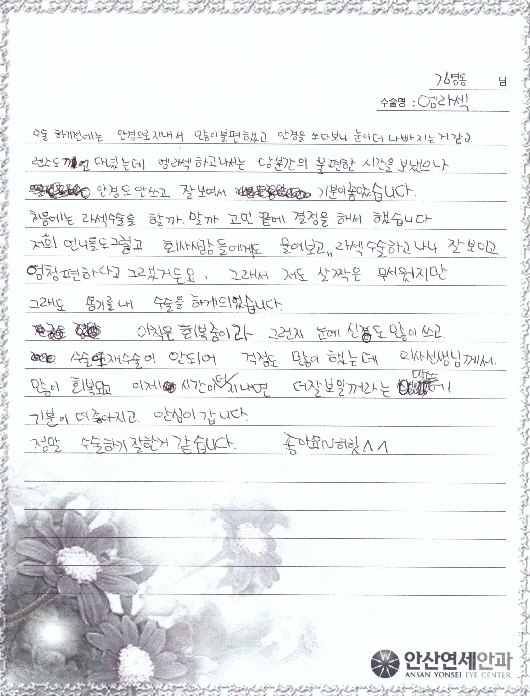 김영동 님
수술명 : 엠라섹
수술 하기전에는 안경으로지내서 많이불편했고 안경을 쓰다보니 눈이더 나빠지는거같고
렌즈도 끼고 다녔는데 엠라섹하고나서는 당분간의 불편한 시간을 보냈으나
안경도안쓰고 잘보여서 기분이좋았습니다.
처음에는 라섹수술을 할까, 말까 고민 끝에 결정을 해서 했습니다
저희 언니들도그렇고 회사사람들에게도 물어보고,, 라섹수술하고 나니 잘보이고
엄청편하다고 그랬거든요. 그래서 저도 살짝은 무서웠지만
그래도 용기를내 수술을 하게되었습니다.
아직은 회복중이라 그런지 눈에 신경도 많이 쓰고
수술후재수술이 안되어 걱정도 많이 했는데 의사선생님께서.
많이 회복되고 이제 시간이 더 지나면 더잘보일꺼라는 말듣기
기분이 더좋아지고. 안심이 갑니다.
정말 수술하기 잘한거 같습니다. 좋아요~ 히힛^^
안산연세안과
ANSAN YONSEI EYE CENTER